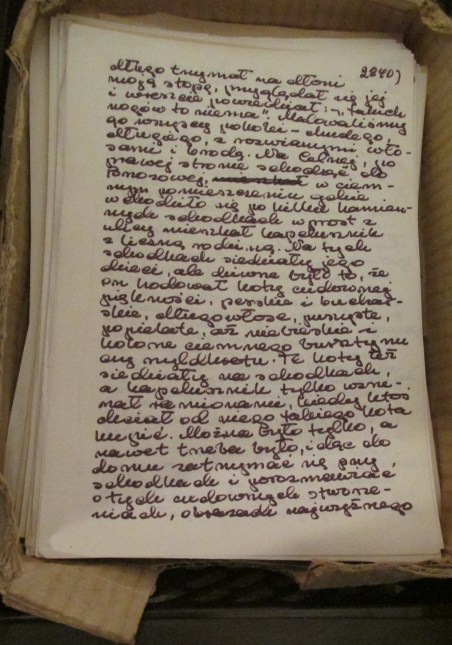 2840)
długo trzymał na dłoni
moją stopę, przyglądał się jej
i wreszcie powiedział: – „takich
nogów to niema". Malowaliśmy
go wszyscy pokolei – chudego,
długiego, z rozwianymi wło-
sami i brodą. Na Celnej, po
prawej stronie schodząc do
Brzozowej, w ciem-
nym pomieszczeniu gdzie
wchodziło się po kilku kamien-
nych schodkach wprost z
ulicy mieszkał kapelusznik
z liczną rodziną. Na tych
schodkach siedziały jego
dzieci, ale dziwne było to, że
on hodował koty cudownej
piękności, perskie i buchar-
skie, długowłose, puszyste,
popielate, aż niebieskie i
koloru ciemnego bursztynu
czy szyldkretu. Te koty też
siedziały na schodkach,
a kapelusznik tylko wzru-
szał ramionami, kiedy ktoś
chciał od niego takiego kota
kupić. Można było tylko, a
nawet trzeba było, idąc do
domu zatrzymać się przy
schodkach i porozmawiać
o tych cudownych stworze-
niach, okazach najwyższego